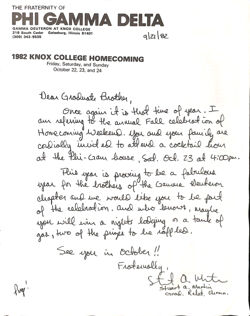 THE FRATERNITY OF
PHI GAMMA DELTA
GAMMA DEUTERON AT KNOX COLLEGE
Galesburg, Illinois 61401
9/21/82
1982 KNOX COLLEGE HOMECOMING
Friday, Saturday, and Sunday
October 22, 23, and 24
Dear Graduate Brother,
Once again it is that time of year. I
am referring to the annual Fall celebration of
Homecoming Weekend. You and your family are
cordially invited to attend a cocktail hour
at the Phi-Gam house, Sat. Oct. 23 at 4:00pm.
This year is proving to be a fabulous
year for the brothers of the Gamma Deuteron
chapter and we would like you to be part
of the celebration, and who knows, maybe
you will win a nights lodging or a tank of
gas, two of the prizes to be raffled.
See you in October!!
Fraternally,
Stuart A.
Grad. Relat. Chrmn.